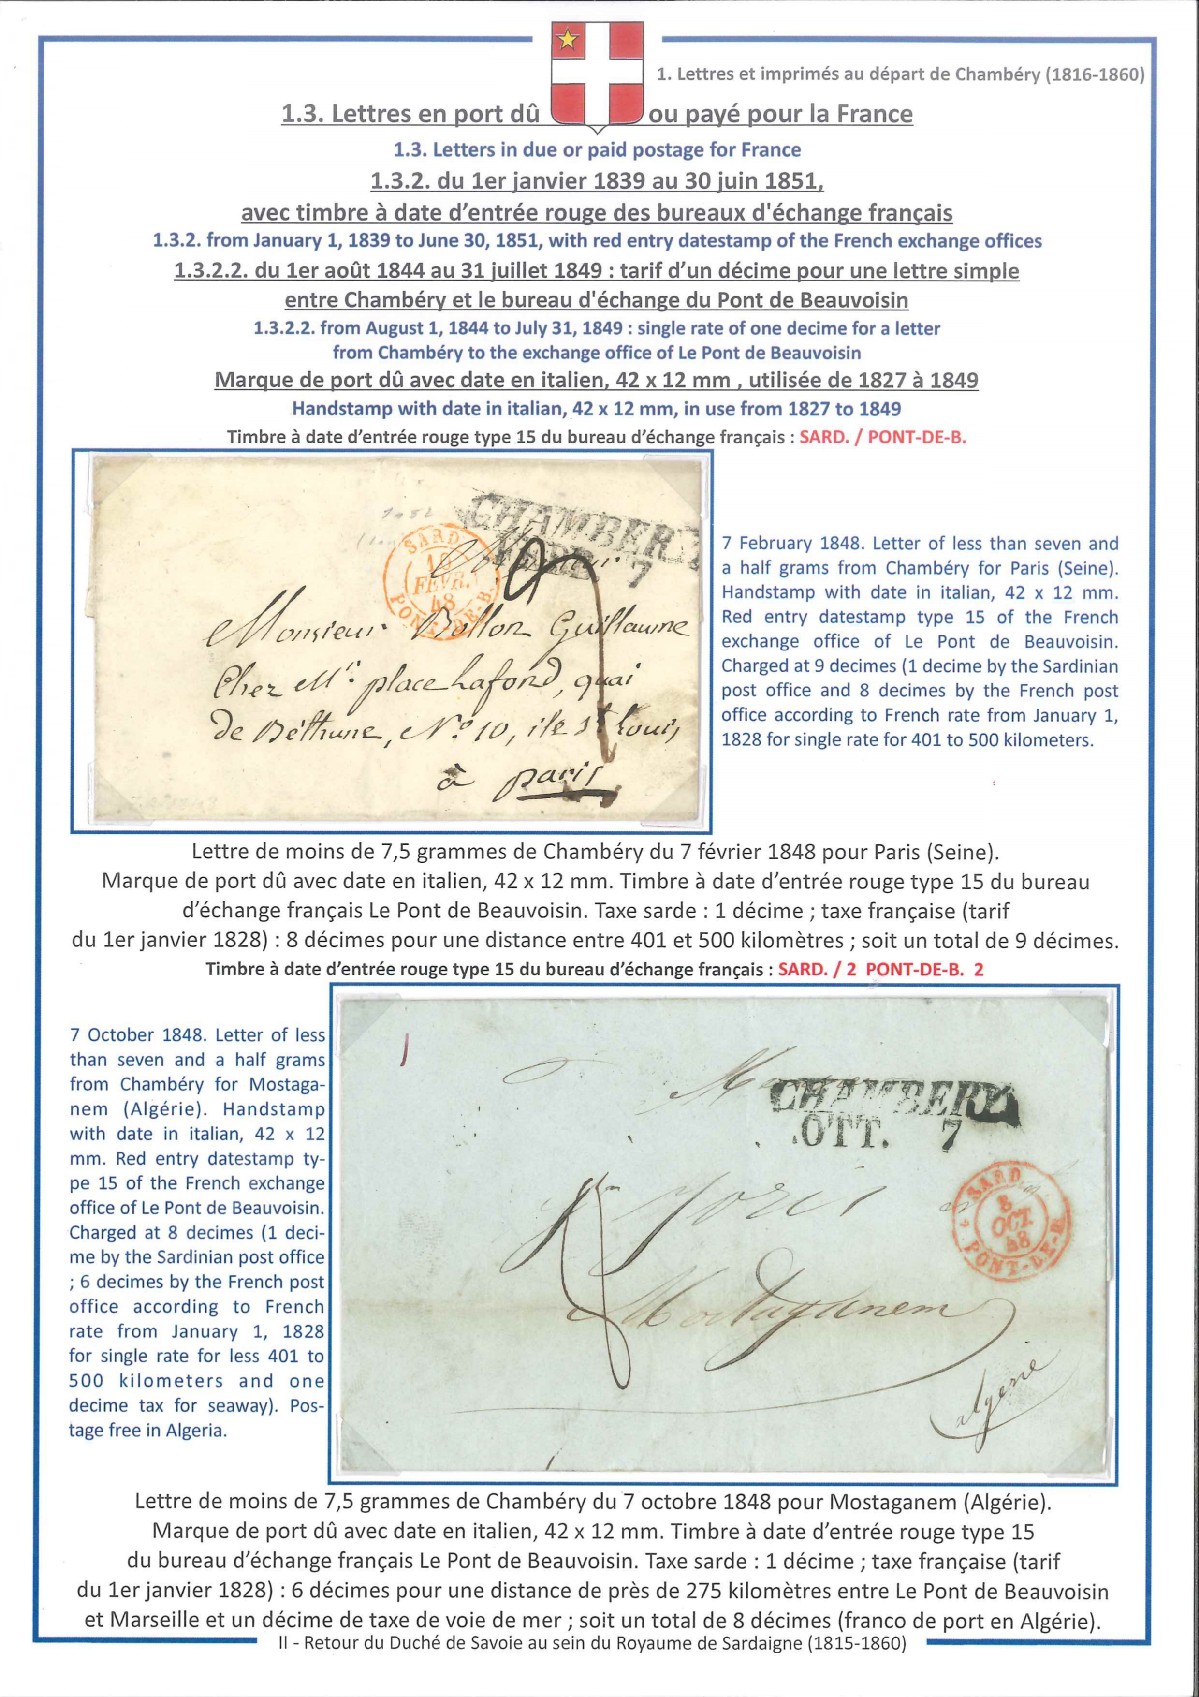 1. Lettres et imprimés au départ de Chambéry (1816-1860)
1.3. Lettres en port dû ou payé pour la France
1.3. Letters in due or paid postage for France
1.3.2. du 1er janvier 1839 au 30 juin 1851,
avec timbre à date d’entrée rouge des bureaux d'échange français
1.3.2. from January 1, 1839 to June 30, 1851, with red entry datestamp of the French exchange offices
1.3.2.2. du 1er août 1844 au 31 juillet 1849 : tarif d’un décime pour une lettre simple
entre Chambéry et le bureau d'échange du Pont de Beauvoisin
1.3.2.2. from August 1, 1844 to July 31, 1849 : single rate of one decime for a letter
from Chambéry to the exchange office of Le Pont de Beauvoisin
Marque de port dû avec date en italien, 42 x 12 mm , utilisée de 1827 à 1849
Handstamp with date in italian, 42 x 12 mm, in use from 1827 to 1849
Timbre à date d’entrée rouge type 15 du bureau d’échange français : SARD. / PONT-DE-B.
CHAMBERY
FEBB. 7
SARD.
10
FEVR.
48
PONT-DE-B.
Monsieur Bollon Guillaume
Chez Mr. place Lafond, quai
de Béthune, No 10, ile St Louis,
à paris
7 February 1848. Letter of less than seven and
a half grams from Chambéry for Paris (Seine).
Handstamp with date in italian, 42 x 12 mm.
Red entry datestamp type 15 of the French
exchange office of Le Pont de Beauvoisin.
Charged at 9 decimes (1 decime by the Sardinian
post office and 8 decimes by the French post
office according to French rate from January 1,
1828 for single rate for 401 to 500 kilometers.
Lettre de moins de 7,5 grammes de Chambéry du 7 février 1848 pour Paris (Seine).
Marque de port dû avec date en italien, 42 x 12 mm. Timbre à date d’entrée rouge type 15 du bureau
d’échange français Le Pont de Beauvoisin. Taxe sarde : 1 décime ; taxe française (tarif
du 1er janvier 1828) : 8 décimes pour une distance entre 401 et 500 kilomètres ; soit un total de 9 décimes.
Timbre à date d’entrée rouge type 15 du bureau d’échange français : SARD. / 2 PONT-DE-B. 2
7 October 1848. Letter of less
than seven and a half grams
from Chambéry for Mostaga-
nem (Algérie). Handstamp
with date in italian, 42 x 12
mm. Red entry datestamp ty-
pe 15 of the French exchange
office of Le Pont de Beauvoisin.
Charged at 8 decimes (1 deci-
me by the Sardinian post office
; 6 decimes by the French post
office according to French
rate from January 1, 1828
for single rate for less 401 to
500 kilometers and one
decime tax for seaway). Pos-
tage free in Algeria.
CHAMBERY
OTT. 7
SARD.
8
OCT.
48
PONT-DE-B.
Mostaganem
algerie
Lettre de moins de 7,5 grammes de Chambéry du 7 octobre 1848 pour Mostaganem (Algérie).
Marque de port dû avec date en italien, 42 x 12 mm. Timbre à date d’entrée rouge type 15
du bureau d’échange français Le Pont de Beauvoisin. Taxe sarde : 1 décime ; taxe française (tarif
du 1er janvier 1828) : 6 décimes pour une distance de près de 275 kilomètres entre Le Pont de Beauvoisin
et Marseille et un décime de taxe de voie de mer ; soit un total de 8 décimes (franco de port en Algérie).
II - Retour du Duché de Savoie au sein du Royaume de Sardaigne (1815-1860)